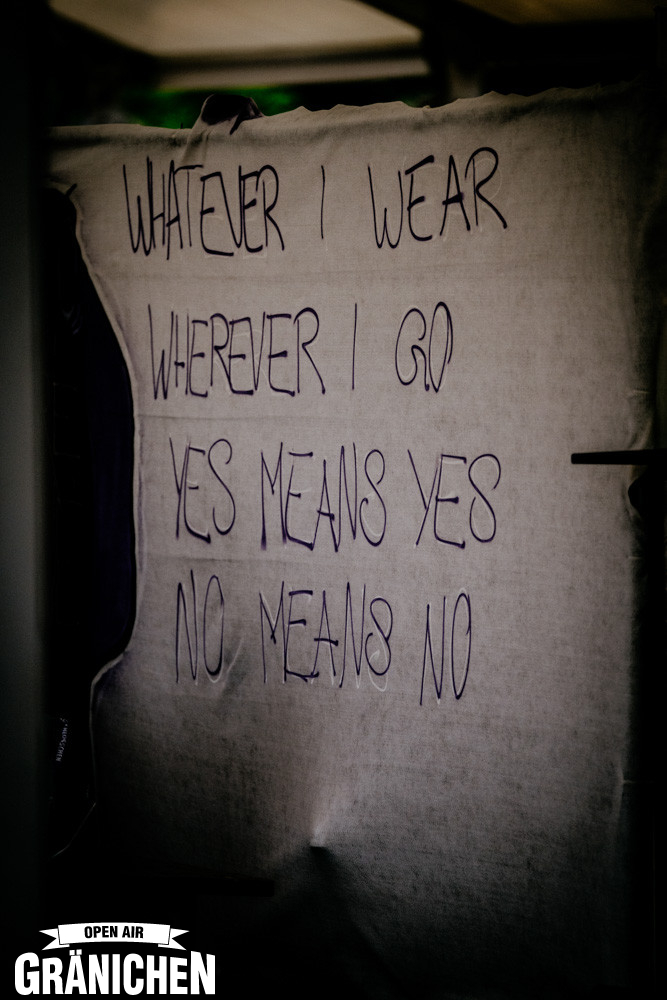 WHATEVER I WEAR
WHEREVER I GO
YES MEANS YES
NO MEANS NO
OPEN AIR
GRÄNICHEN